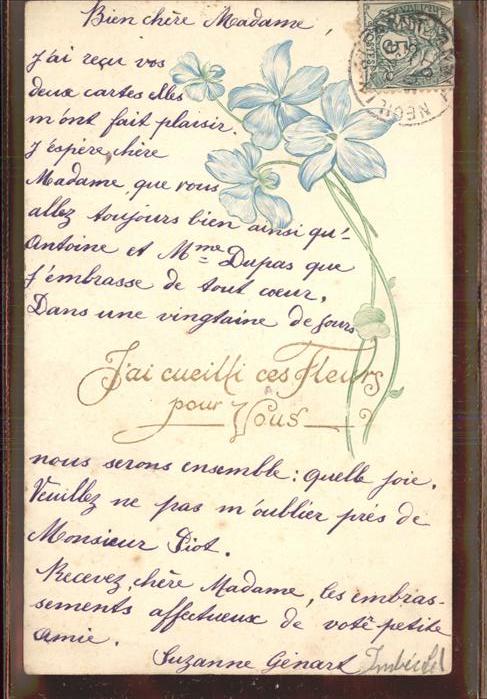 Bien chère Madame,
J'ai reçu vos
deux cartes elles
m'ont fait plaisir.
J'espère, chère
Madame, que vous
allez toujours bien ainsi qu'-
Antoine et Mme Dupas que
j'embrasse de tout cœur.
Dans une vingtaine de jours
J'ai cueilli ces Fleurs
pour Vous
nous serons ensemble : quelle joie.
Veuillez ne pas m'oublier près de
Monsieur Piot.
Recevez, chère Madame, les embras-
sements affectueux de votê petite
amie.
Suzanne Génart